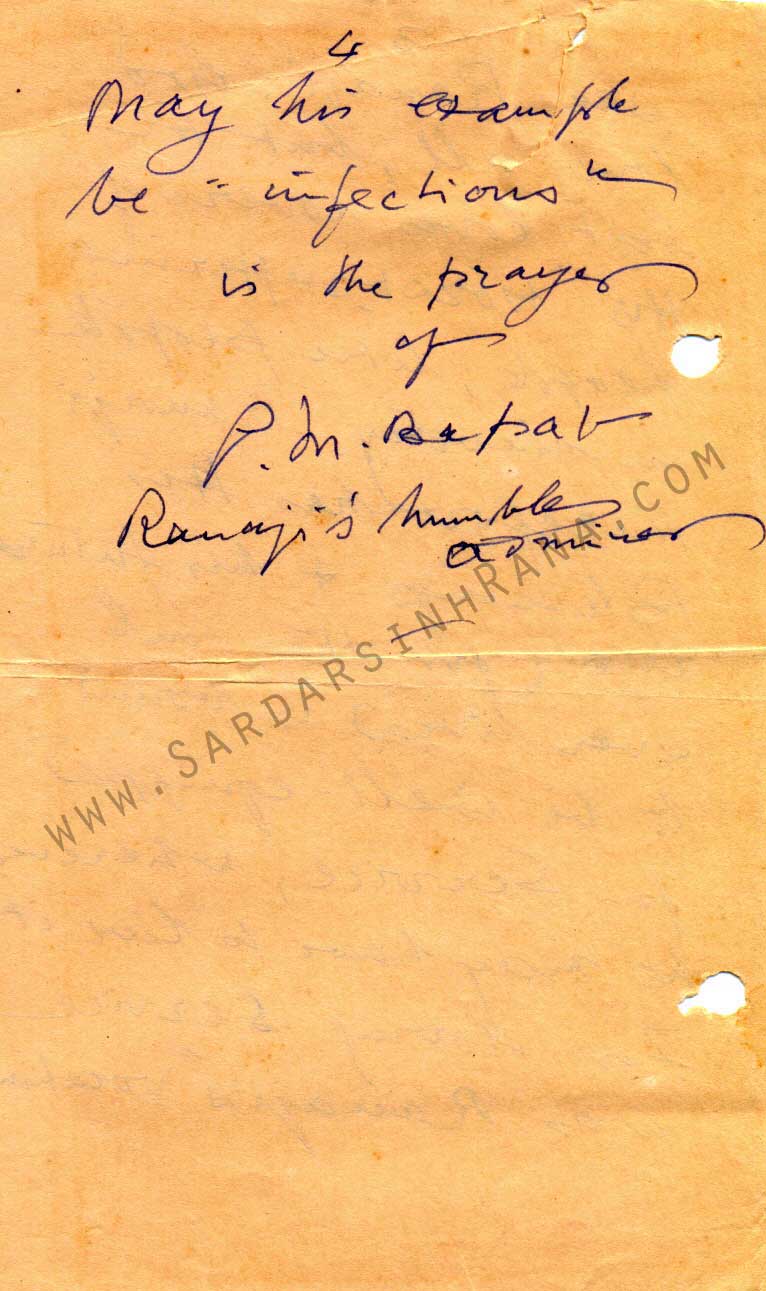 4
May his example
be "infectious"
is the prayer
of
P. M. Bapat
Ranaji's humble
admirer
www.SARDARSINHRANA.COM